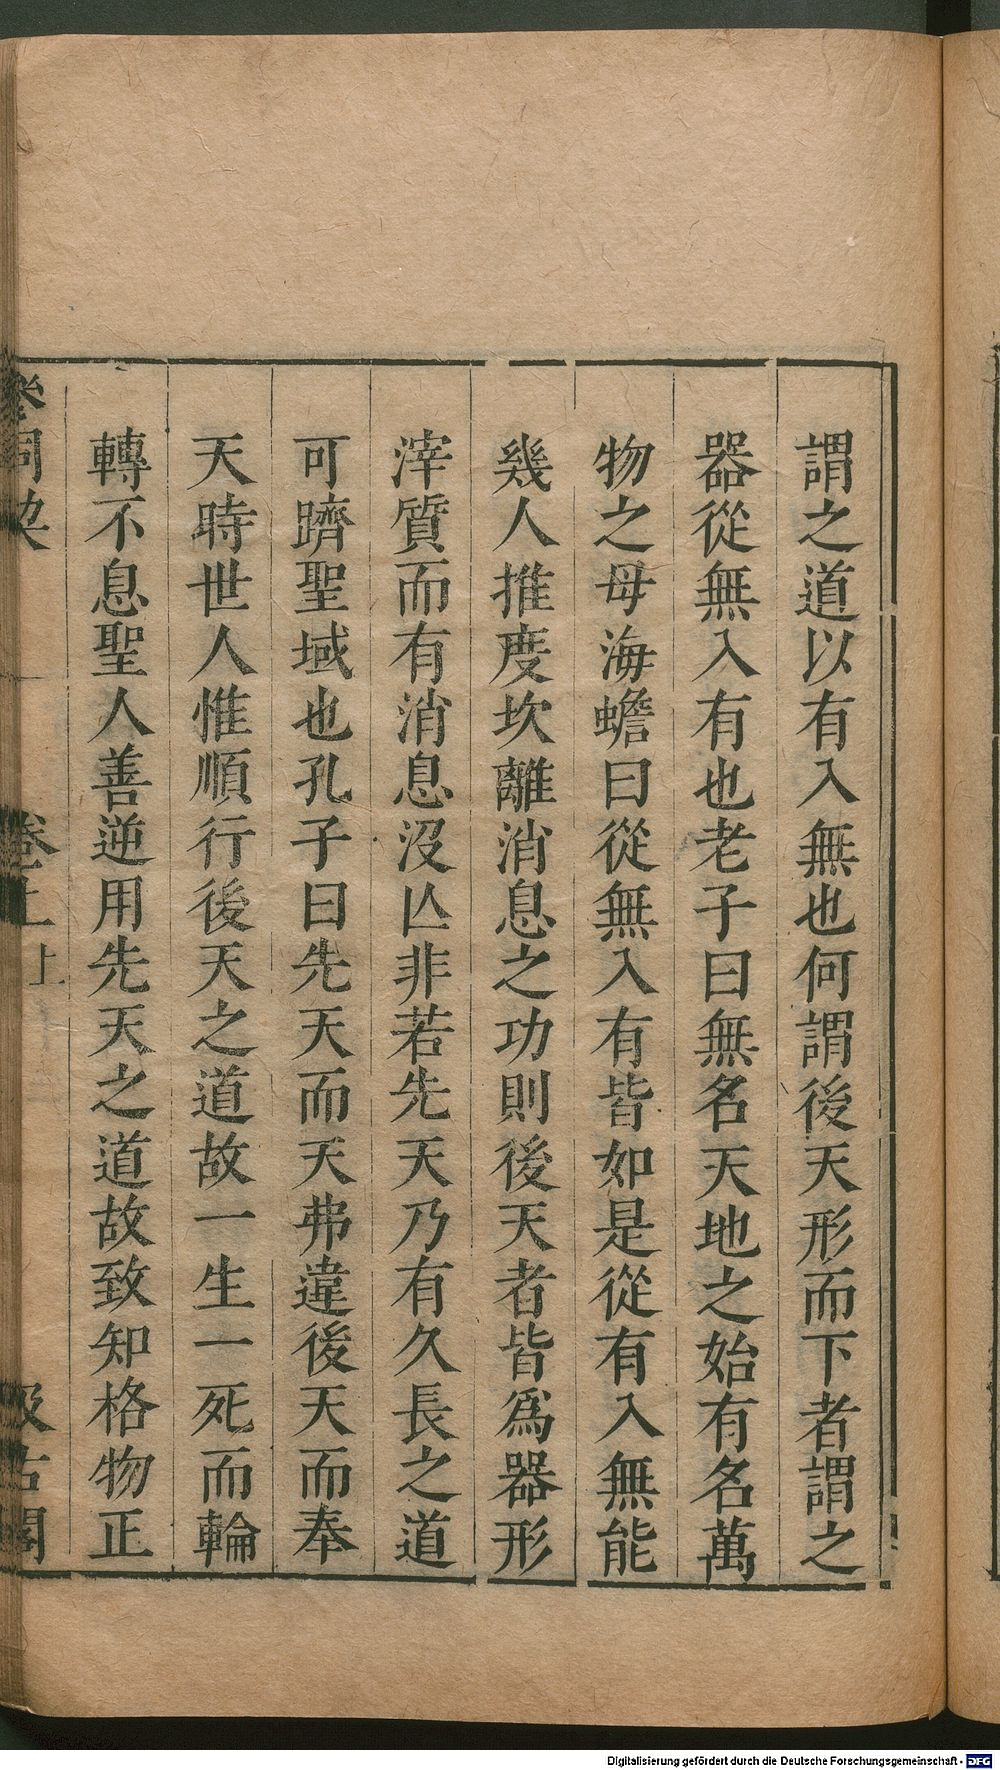 謂之道以有入無也何謂後天形而下者謂之
器從無入有也老子曰無名天地之始有名萬
物之母海蟾曰從無入有皆如是從有入無能
幾人推度坎離消息之功則後天者皆爲器形
滓質而有消息沒亾非若先天乃有久長之道
可躋聖域也孔子曰先天而天弗違後天而奉
天時世人惟順行後天之道故一生一死而輪
轉不息聖人善逆用先天之道故致知格物正
參同契 卷上上 汲古閣
Digitalisierung gefördert durch die Deutsche Forschungsgemeinschaft - DFG